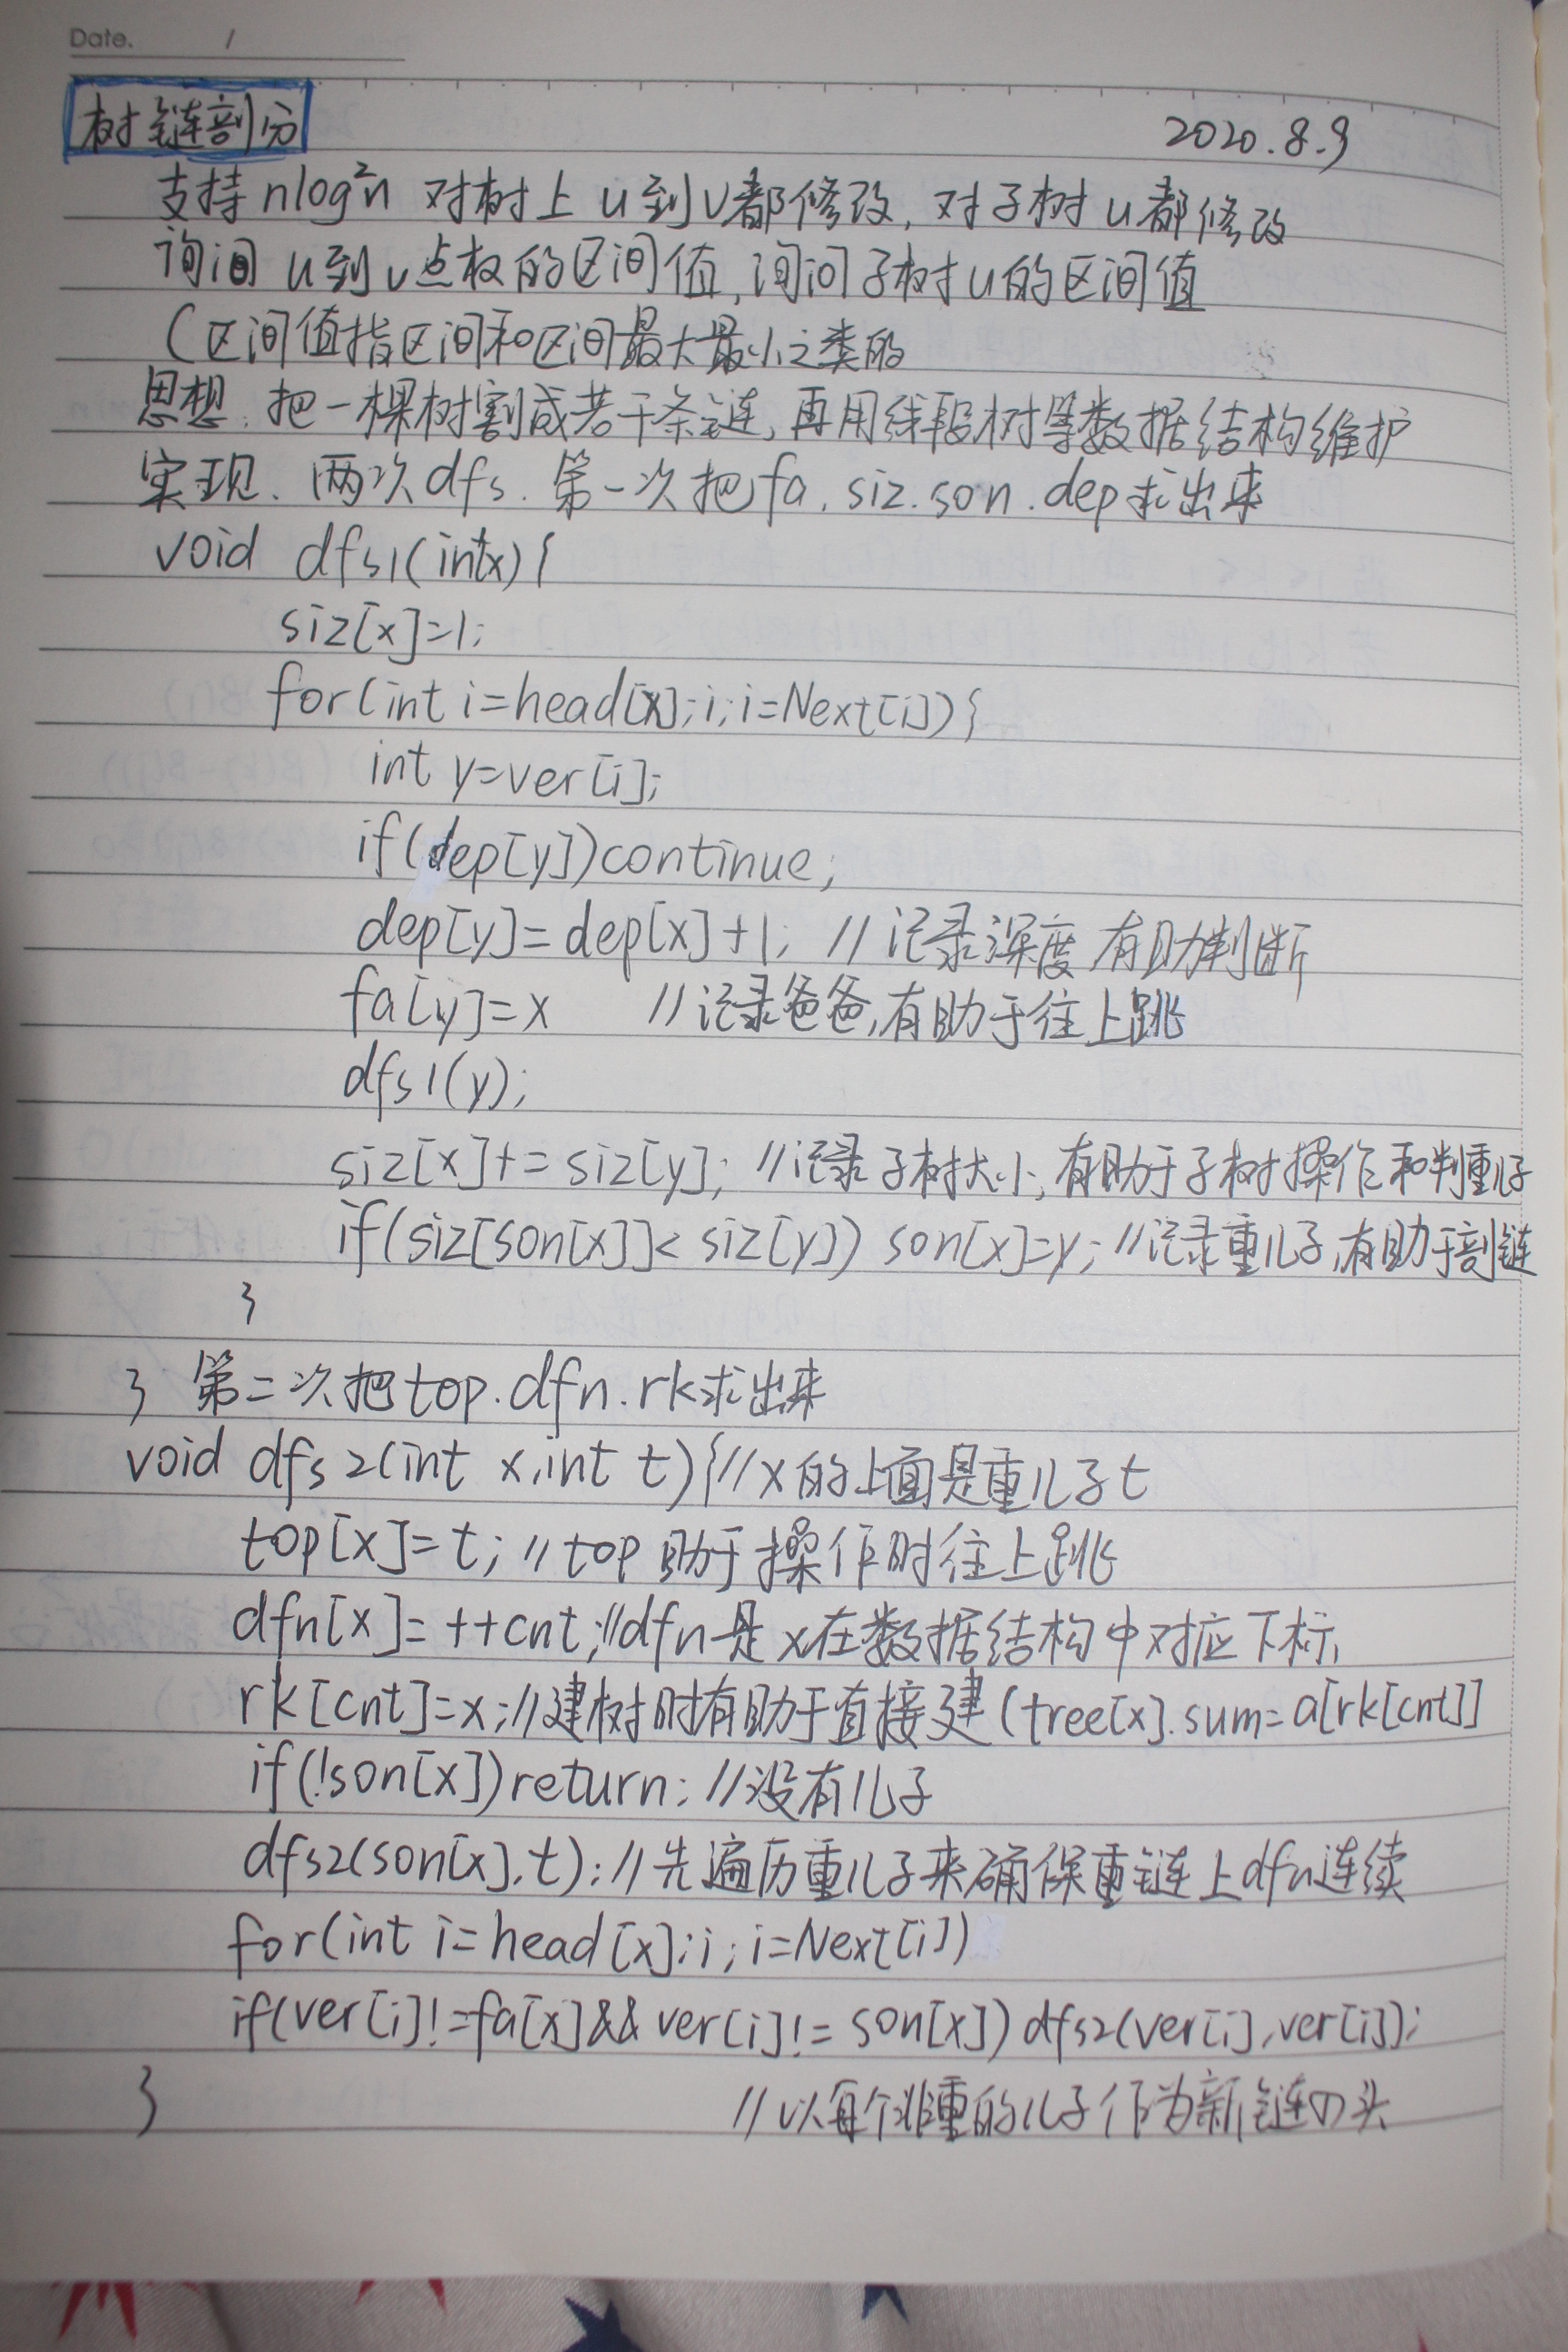 Date. /
树链剖分
2020.8.9
支持nlog²n 对树上u到v都修改,对子树u都修改
询问u到v点权的区间值,询问子树u的区间值
(区间值指区间和区间最大最小之类的
思想:把一棵树割成若干条链,再用线段树等数据结构维护
实现.两次dfs.第一次把fa.siz.son.dep求出来
void dfs1(int x){
siz[x]=1;
for(int i=head[x];i;i=Next[i]){
int y=ver[i];
if(dep[y])continue;
dep[y]=dep[x]+1; //记录深度 有助判断
fa[y]=x //记录爸爸,有助于往上跳
dfs1(y);
siz[x]+=siz[y]; //记录子树大小,有助于子树操作和判重儿子
if(siz[son[x]]<siz[y]) son[x]=y; //记录重儿子,有助于剖链
}
} 第二次把top.dfn.rk求出来
void dfs2(int x,int t){//x的上面是重儿子t
top[x]=t; //top助于操作时往上跳
dfn[x]=++cnt;//dfn是x在数据结构中对应下标,
rk[cnt]=x;//建树时有助于直接建(tree[x].sum=a[rk[cnt]]
if(!son[x])return; //没有儿子
dfs2(son[x],t); //先遍历重儿子来确保重链上dfn连续
for(int i=head[x];i;i=Next[i])
if(ver[i]!=fa[x]&&ver[i]!=son[x])dfs2(ver[i],ver[i]);
} //以每个非重的儿子作为新链の头